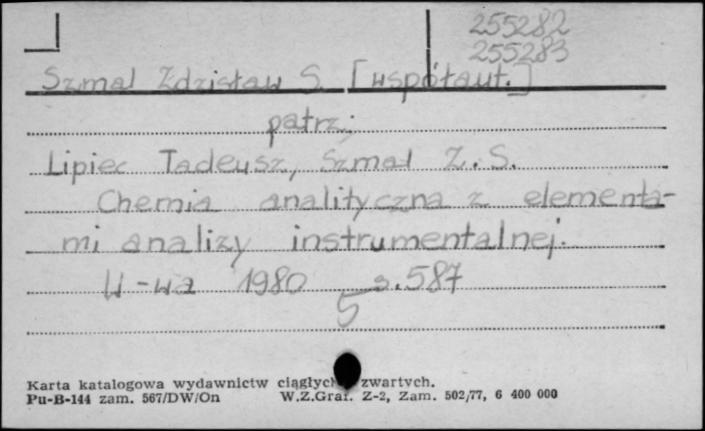 255282
255283
Szmal Zdzisław S. [współaut.]
patrz:
Lipiec Tadeusz, Szmal Z. S.
Chemia analityczna z elementa-
mi analizy instrumentalnej.
W-wa 1980 s. 587
5
Karta katalogowa wydawnictw ciągłych zwartych.
Pu-B-144 zam. 567/DW/On W.Z.Graf. Z-2, Zam. 502/77, 6 400 000